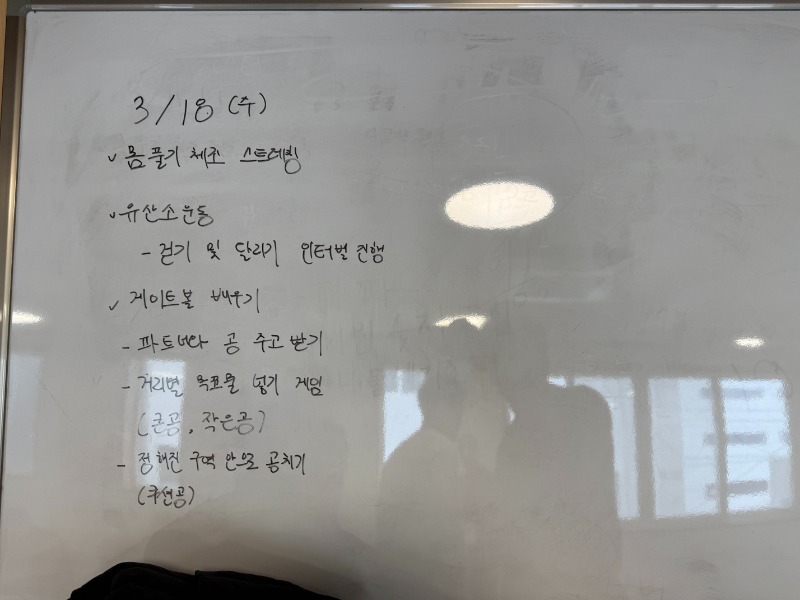 3/18 (수)
✓ 몸풀기 체조 스트레칭
✓ 유산소운동
- 걷기 및 달리기 인터벌 진행
✓ 게이트볼 배우기
- 파트너와 공 주고 받기
- 거리별 목표물 넣기 게임
(큰공, 작은공)
- 정해진 구역 안으로 공치기
(쿠션공)